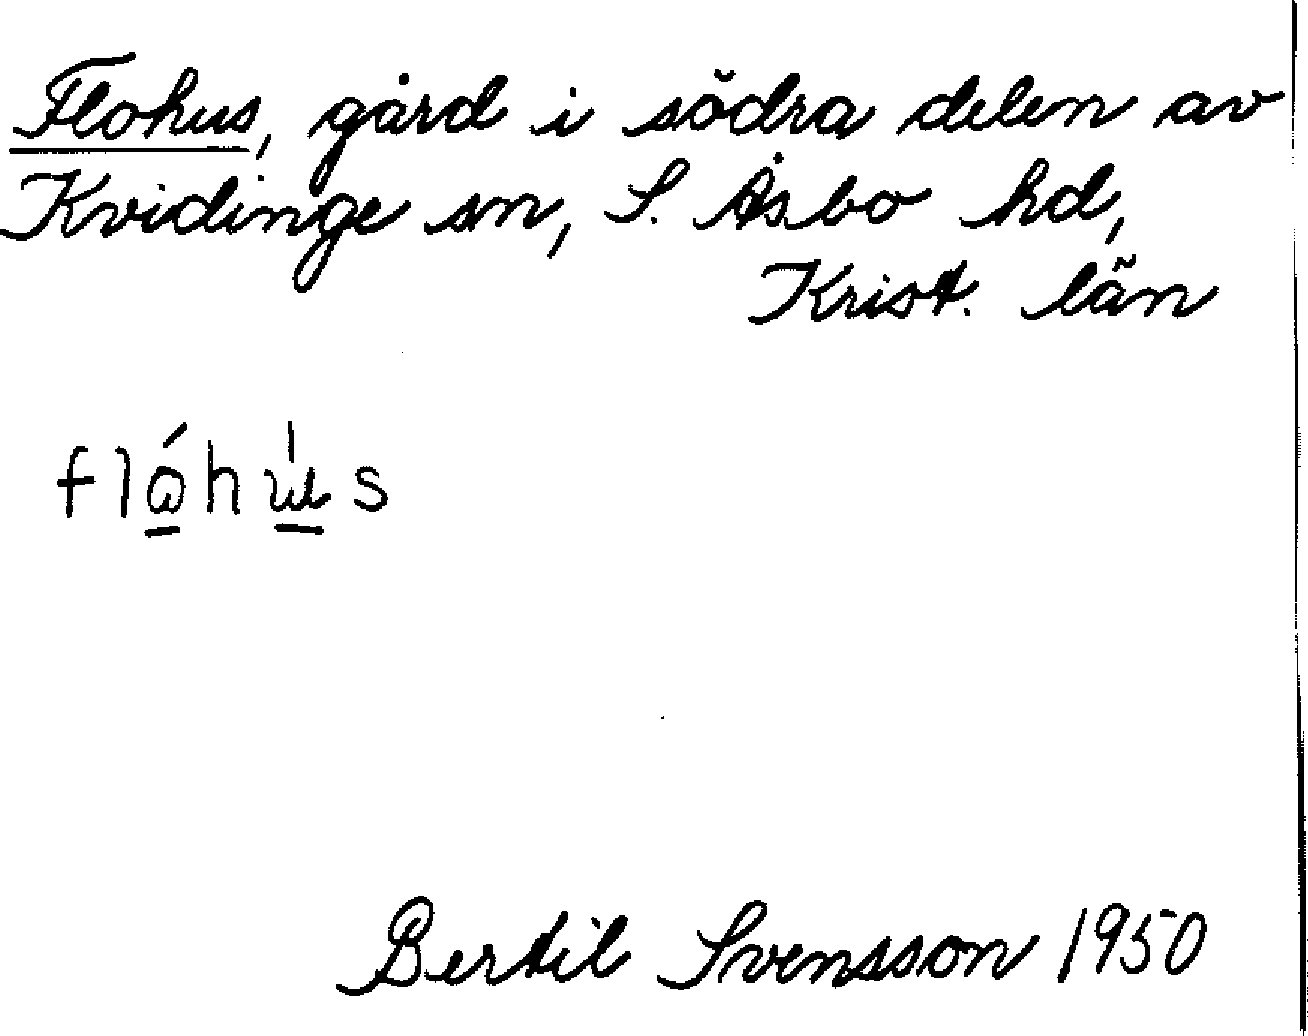 Flohus, gård i södra delen av
Kvidinge sn, S. Åsbo hd,
Krist. län
flóhus
Bertil Svensson 1950